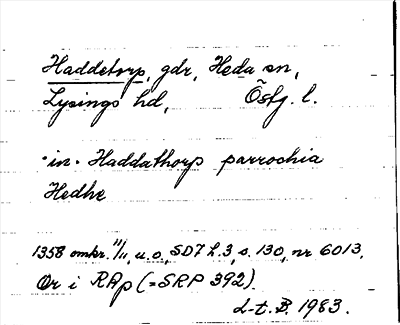 Haddetorp, gdr, Heda sn,
Lysings hd, Östg. l.
·in· Haddathorp parrochia
Hedhe
1358 omkr. 11/11, u.o., SD7 h.3, s. 130, nr 6013.
Or i RAp (=SRP 392).
L-t. B. 1983.